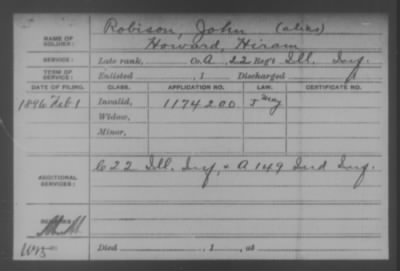 Robison, John (alias)
NAME OF SOLDIER: Howard, Hiram
SERVICE: Late rank, Co. A, 22 Reg't Ill. Inf.
TERM OF SERVICE: Enlisted , 1 Discharged
DATE OF FILING. CLASS. APPLICATION NO. LAW. CERTIFICATE NO.
1896 Feb 1 Invalid, 1174200
Widow,
Minor,
ADDITIONAL SERVICES: C 22 Ill. Inf, + A 149 Ind Inf.
Died , 1 , at